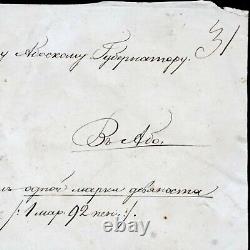 31
у Абоскому Губернатору.
Въ Або.
одной марки девяноста
/: 1 мар. 92 пен. :/